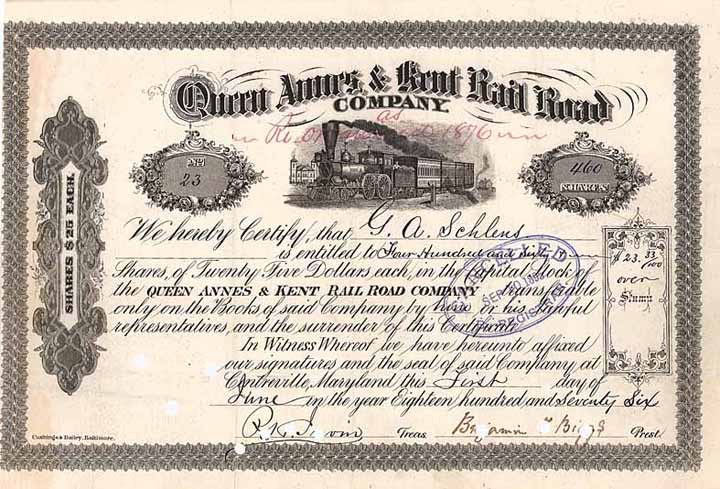 Queen Annes & Kent Rail Road
COMPANY.
as
Reorganized 1876
No.
23
460
SHARES
SHARES $25 EACH.
We hereby Certify, that G. A. Schlens
is entitled to Four Hundred and Sixty
Shares, of Twenty Five Dollars each, in the Capital Stock of
the QUEEN ANNES & KENT RAIL ROAD COMPANY transferable
only on the Books of said Company by him or his lawful
representatives, and the surrender of this Certificate
In Witness Whereof we have hereunto affixed
our signatures and the seal of said Company, at
Centreville, Maryland this First day of
June in the year Eighteen hundred and Seventy Six
Treas. Benjamin Biggs Prest.
$23.33/100
over
Stamp
CANCELLED
SEP 30
Cushings & Bailey, Baltimore.